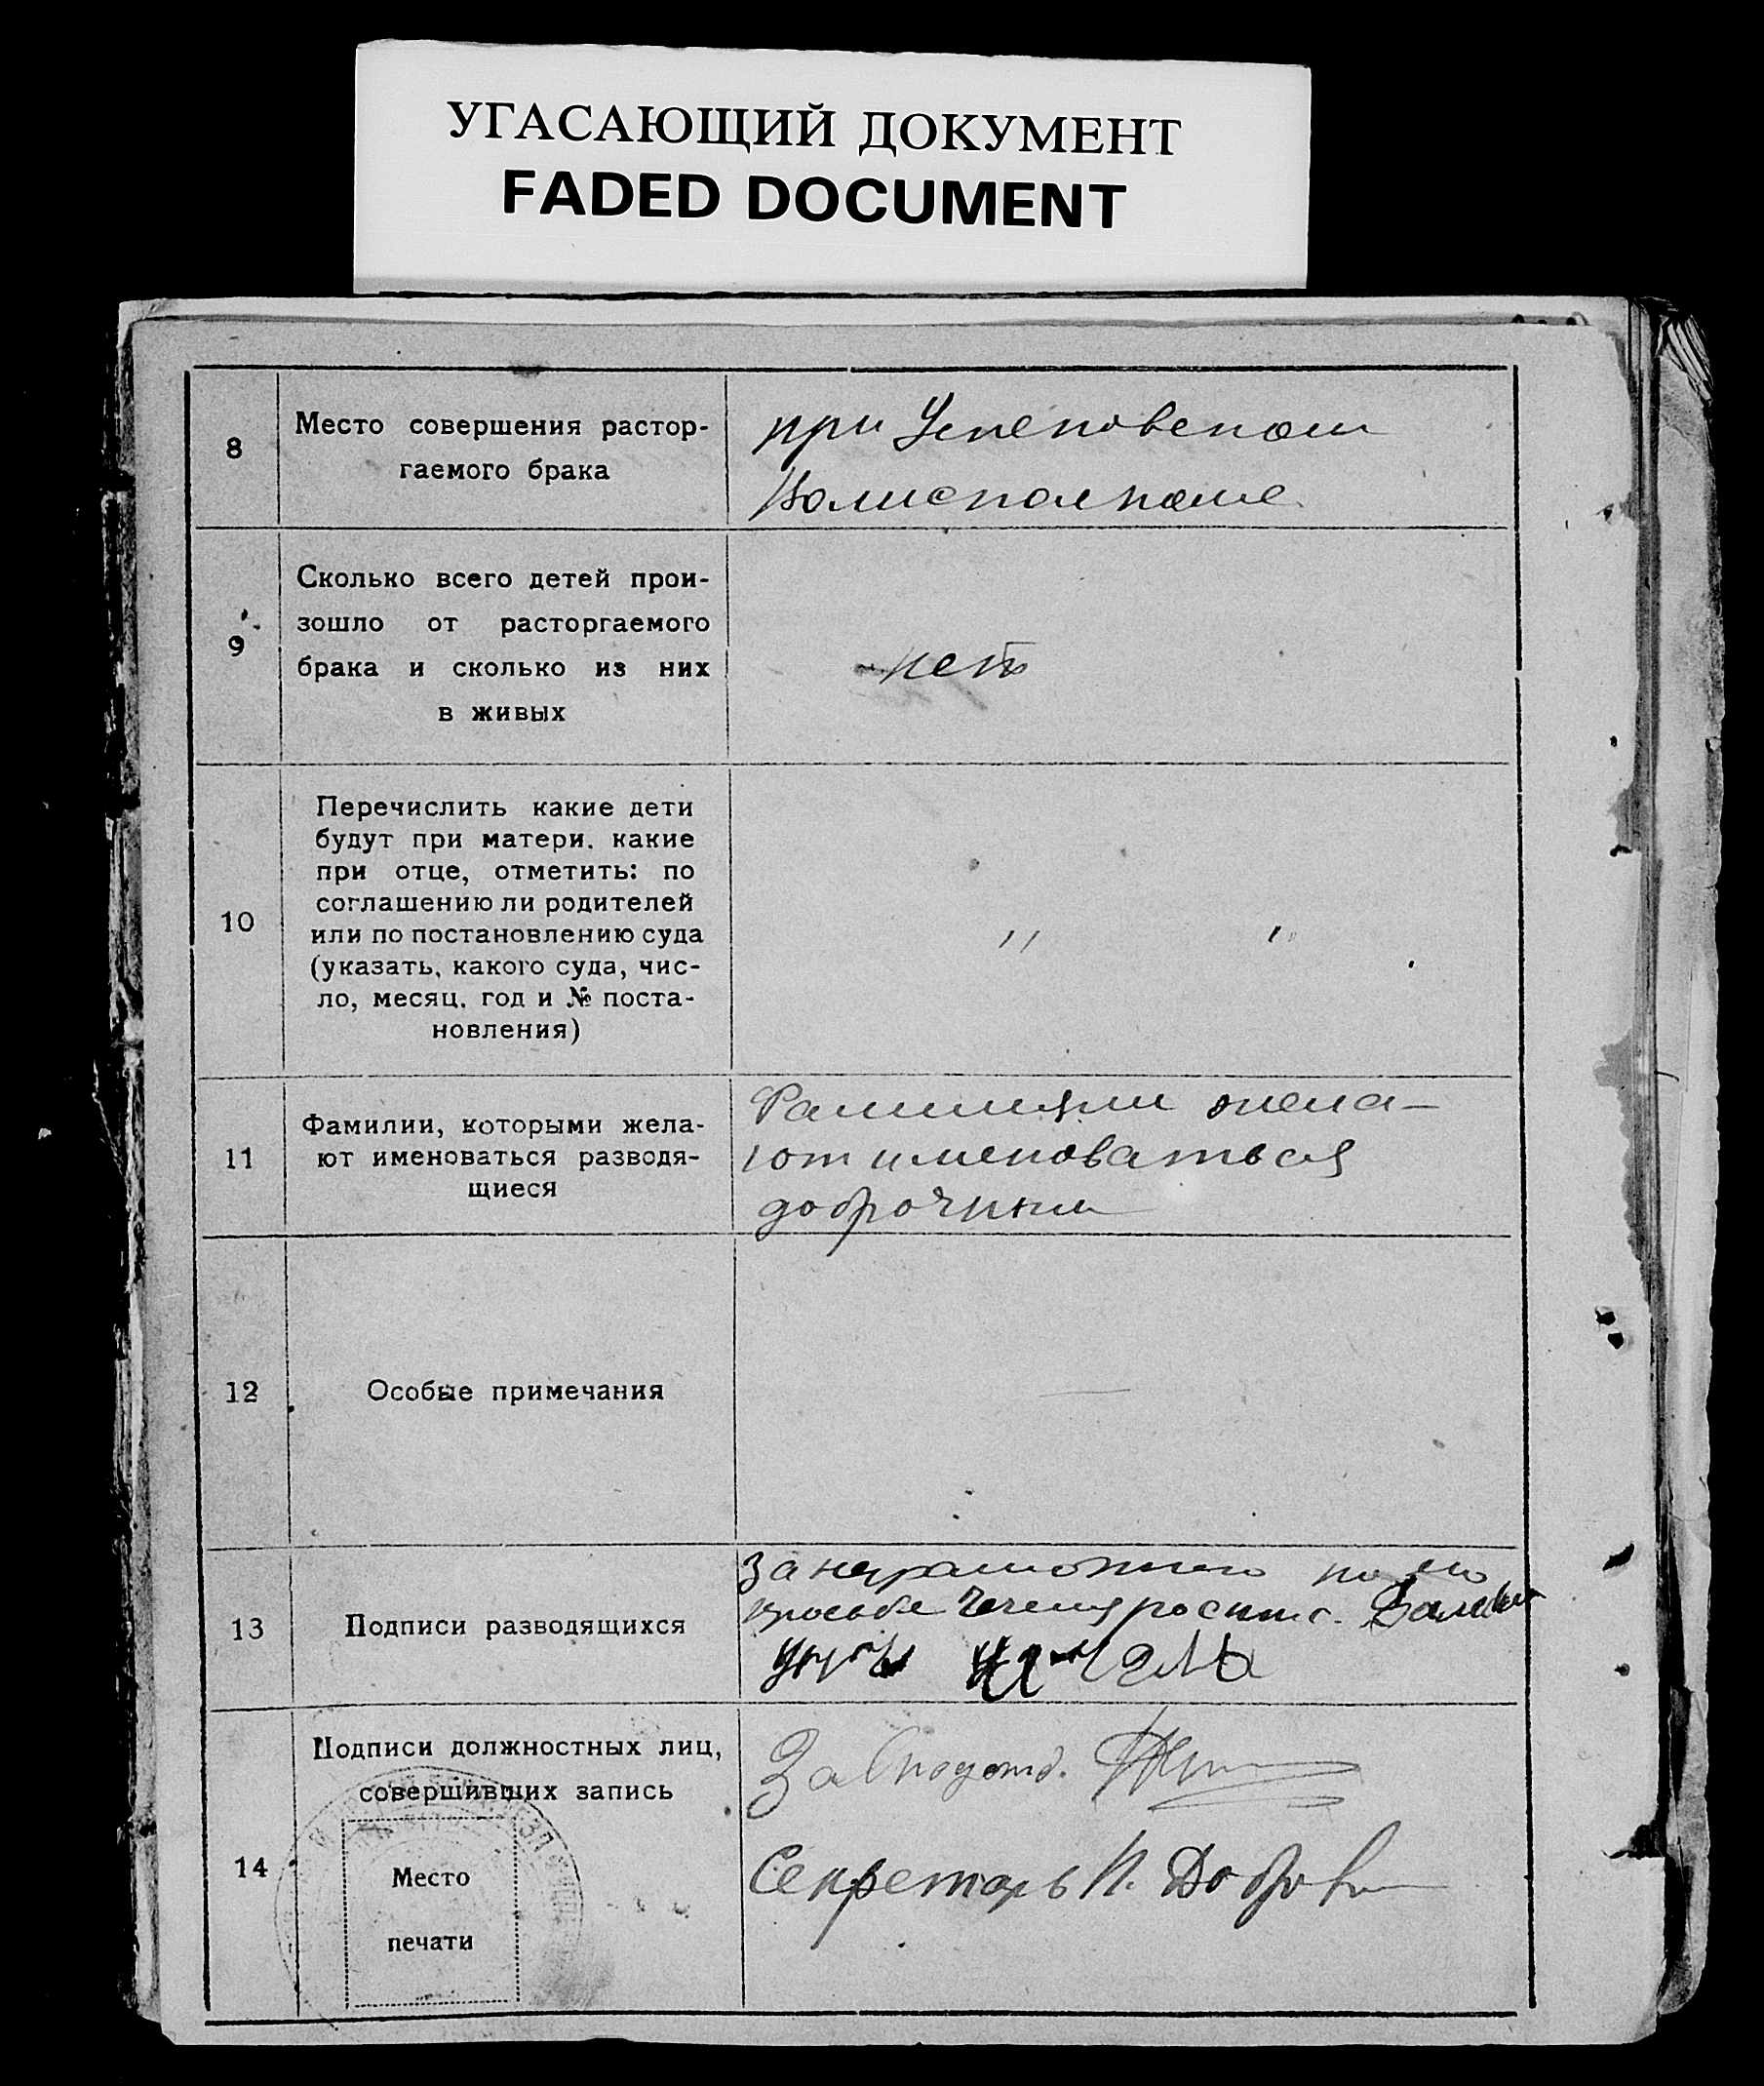 УГАСАЮЩИЙ ДОКУМЕНТ
FADED DOCUMENT
8
Место совершения растор-
гаемого брака
при
Волисполкоме
9
Сколько всего детей прои-
зошло от расторгаемого
брака и сколько из них
в живых
нет
10
Перечислить какие дети
будут при матери. какие
при отце, отметить: по
соглашению ли родителей
или по постановлению суда
(указать, какого суда, чис-
ло, месяц, год и № поста-
новления)
" "
11
Фамилии, которыми жела-
ют именоваться разводя-
щиеся
Фамилиями жела-
ют именоваться
добрачными
12
Особые примечания
—
13
Подписи разводящихся
За неграмотного по его
просьбе
14
Подписи должностных лиц,
совершивших запись
Место
печати
Зав подотд.
Секретарь